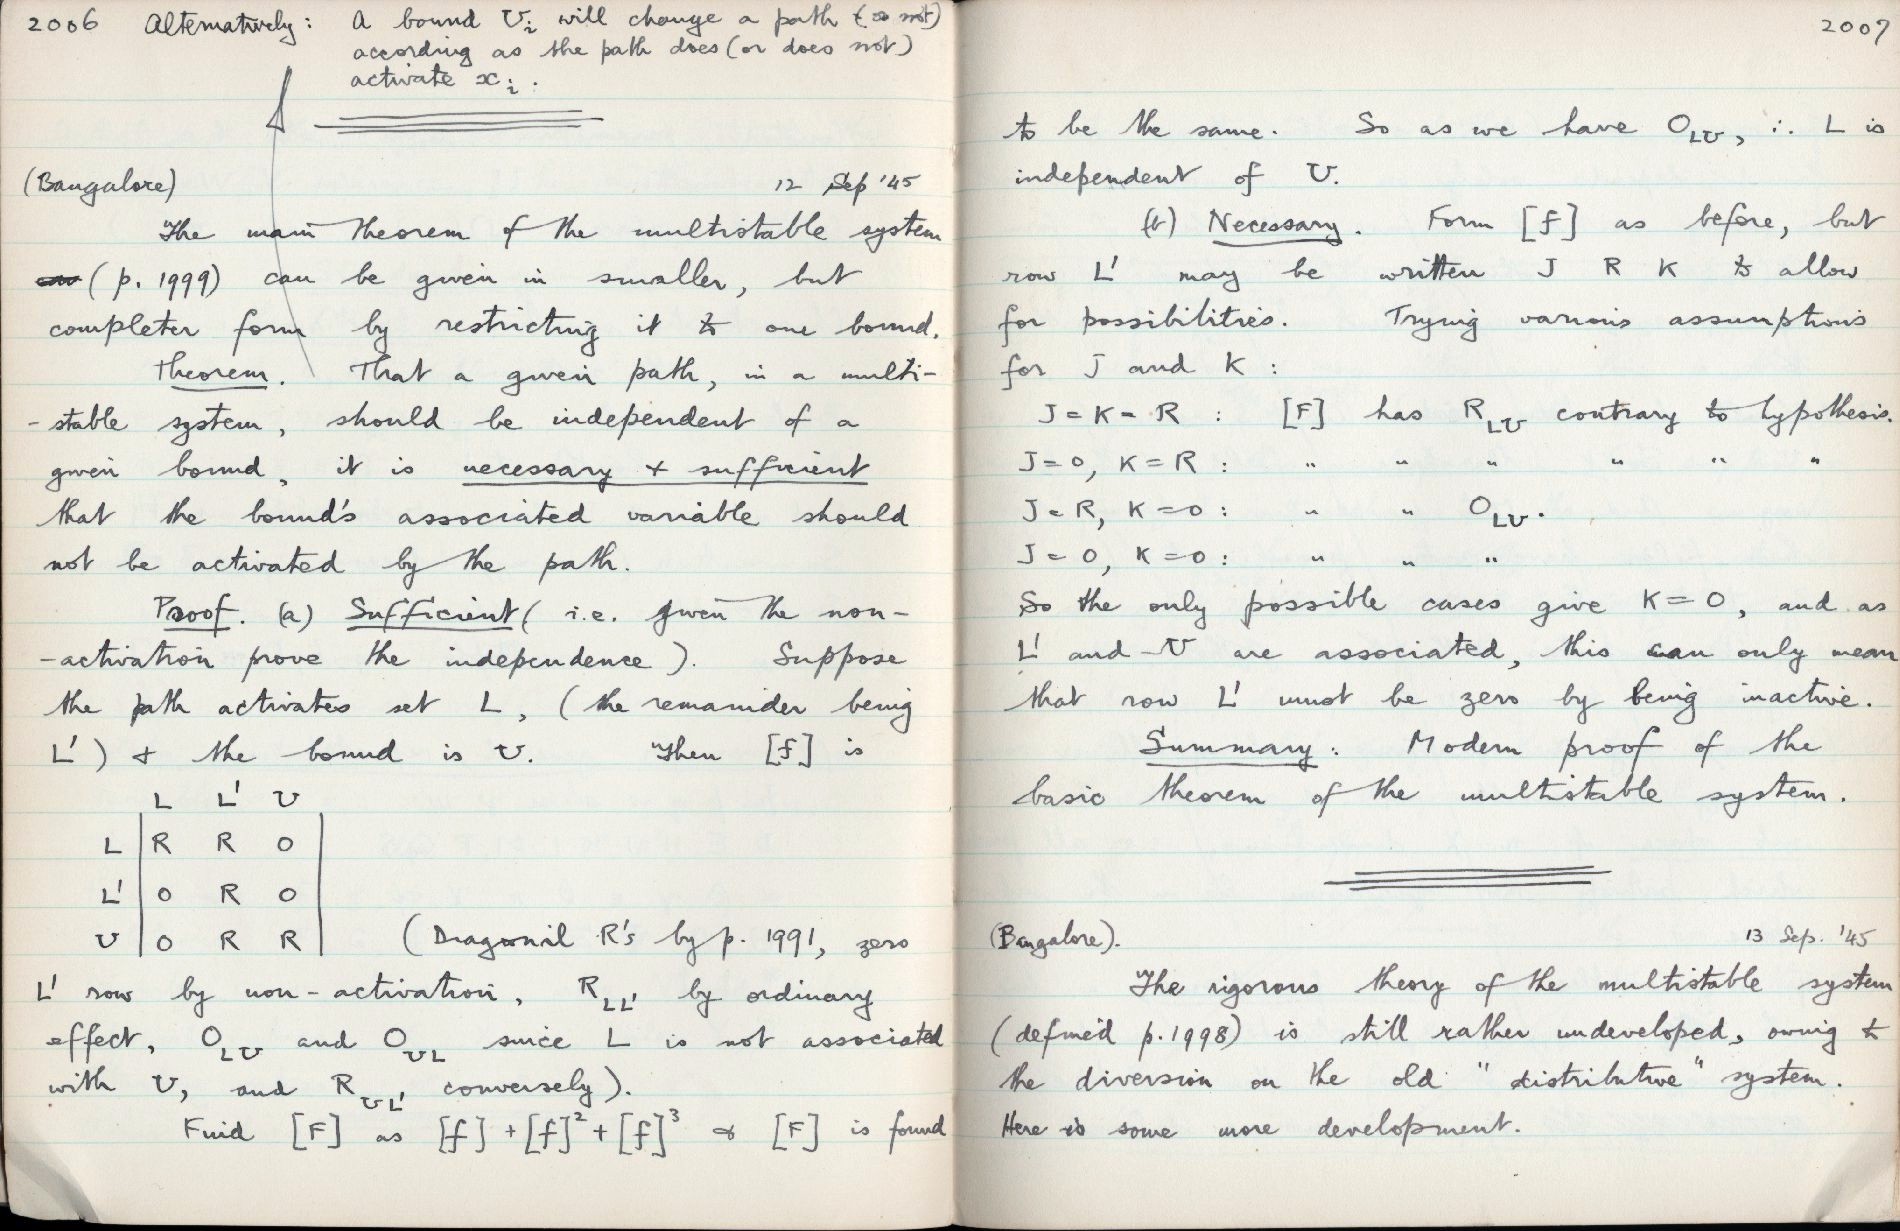 2006 Alternatively: A bound v_i will change a path (or not)
according as the path does (or does not)
activate x_i.
(Bangalore) 12 Sep '45
The main theorem of the multistable system
(p. 1999) can be given in smaller, but
completer form by restricting it to one bound.
Theorem. That a given path, in a multi-
-stable system, should be independent of a
given bound, it is necessary + sufficient
that the bound's associated variable should
not be activated by the path.
Proof. (a) Sufficient (i.e. given the non-
-activation prove the independence). Suppose
the path activates set L, (the remainder being
L') + the bound is v. Then [f] is
L L' v
L R R 0
L' 0 R 0
v 0 R R (Diagonal R's by p. 1991, zero
L' row by non-activation, R_LL' by ordinary
effect, O_Lv and O_vL since L is not associated
with v, and R_vL' conversely).
Find [F] as [f] + [f]² + [f]³ + [F] is found
2007
to be the same. So as we have O_Lv, ∴ L is
independent of v.
(b) Necessary. Form [f] as before, but
row L' may be written J R K to allow
for possibilities. Trying various assumptions
for J and K:
J = K = R : [F] has R_Lv contrary to hypothesis.
J = 0, K = R : " " " " " "
J = R, K = 0 : " " O_Lv.
J = 0, K = 0 : " " "
So the only possible cases give K = 0, and as
L' and v are associated, this can only mean
that row L' must be zero by being inactive.
Summary: Modern proof of the
basic theorem of the multistable system.
(Bangalore). 13 Sep. '45
The rigorous theory of the multistable system
(defined p. 1998) is still rather undeveloped, owing to
the diversion on the old "distributive" system.
Here is some more development.